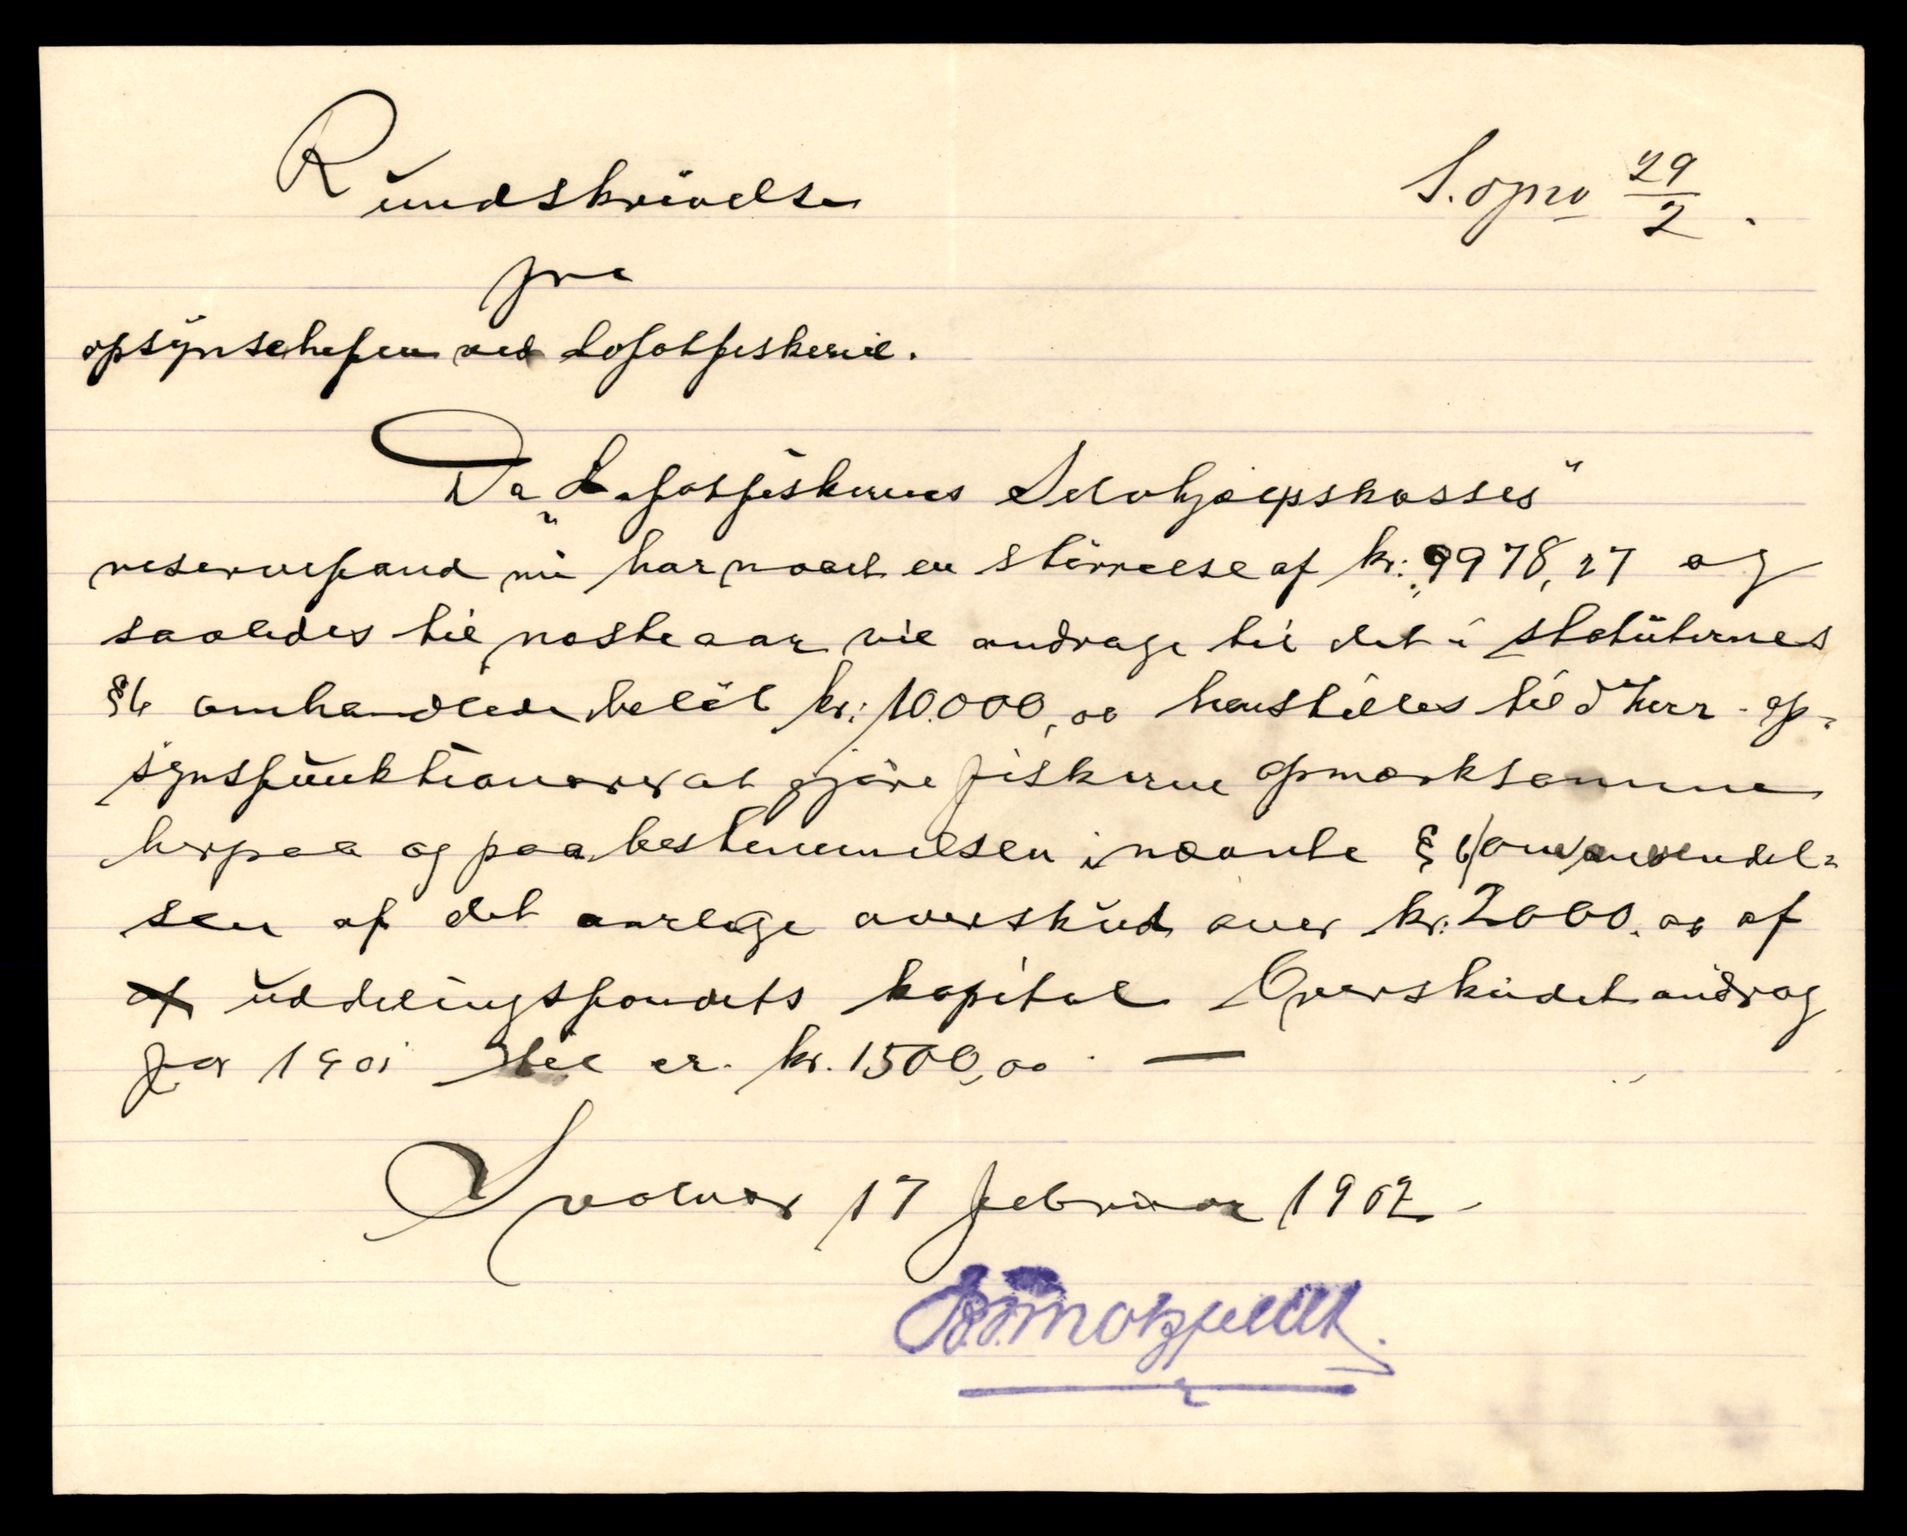 Rundskrivelse
S. opro 29/2.
fra
opsynschefen ved Lofotfiskeriet.
Da „Lofotfiskernes Selvhjælpskasses"
reservefand nu har naaet en störrelse af kr: 9978,27 og
saaledes til næste aar vil andrage til det i statüternes
§6 omhandlede belöb kr: 10.000,00 henstilles til d'Herr. op-
synsfunktionærer at gjöre fiskerne opmærksomme
herpaa og paa bestemmelsen i nævnte § 6 om anvendel-
sen af det aarlige overskud over kr. 2000.00 af
af uddelingsfondets kapital Overskudet androg
for 1901 til er. kr. 1500,00. —
Svolvær 17 februar 1902